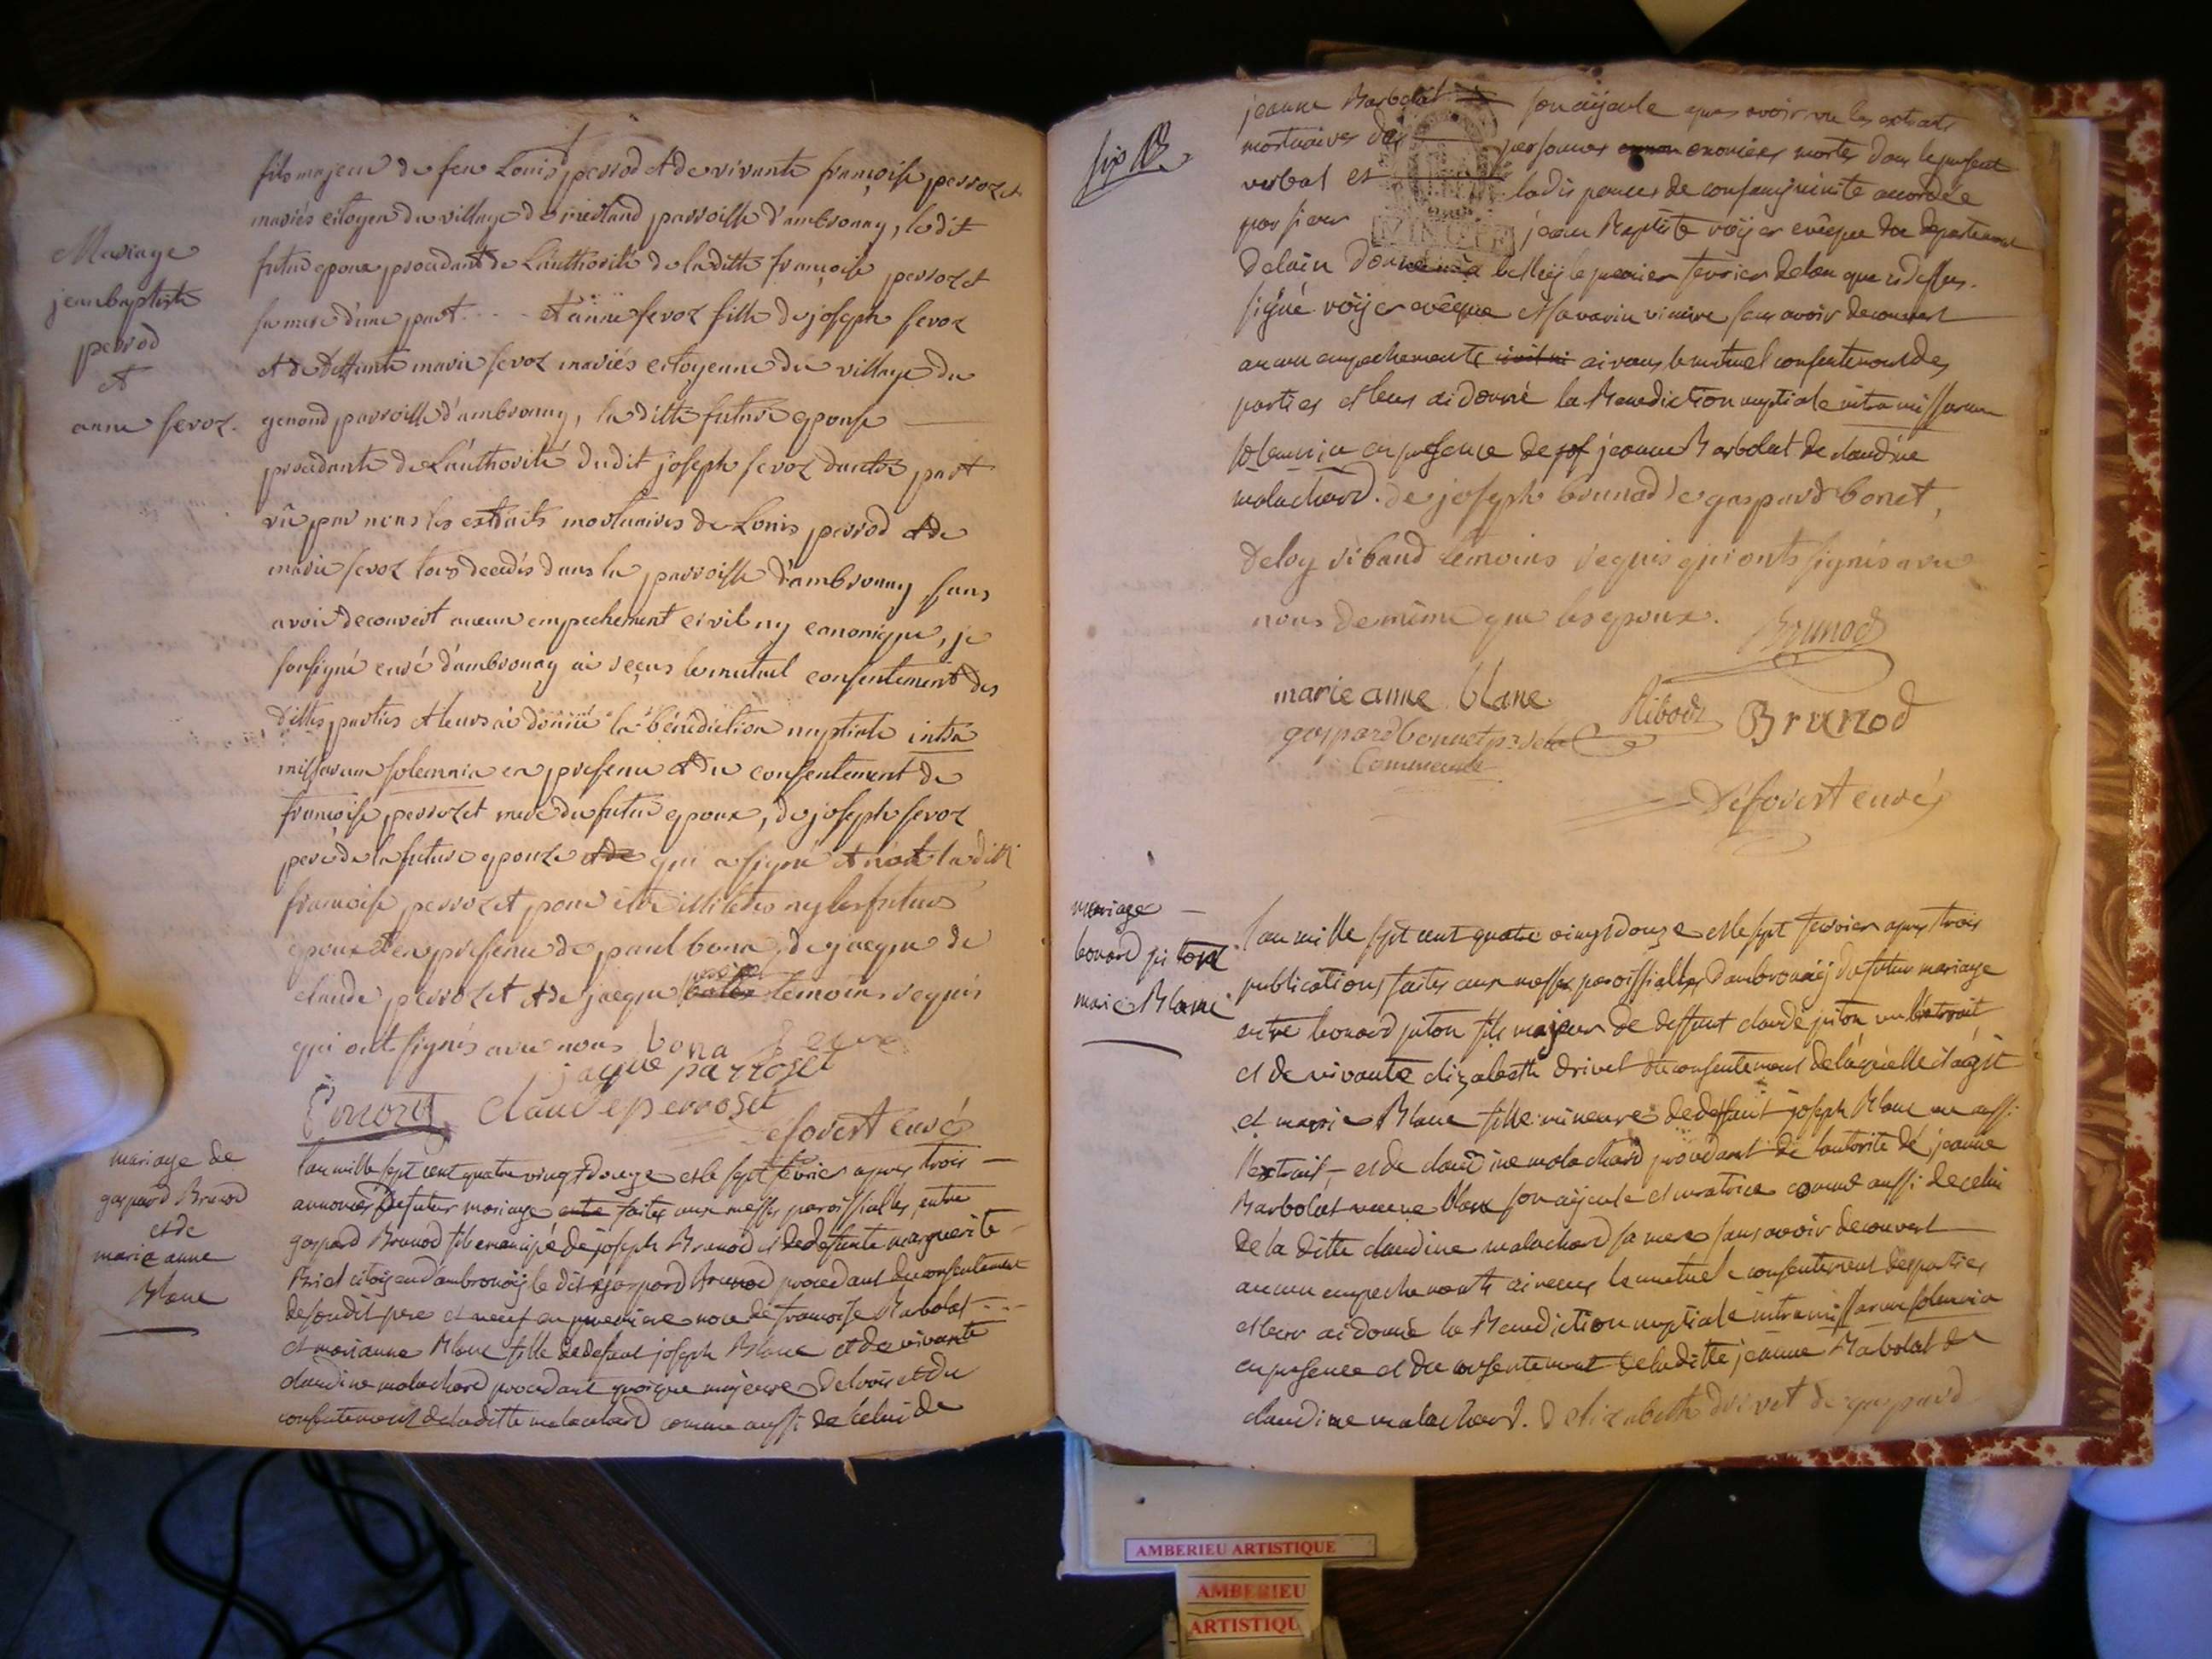 Mariage
jeanbaptiste
perrod
et
anne feroz.
fils majeur de feu Louis perrod et de vivante françoise perrozet
mariés citoyen du village de merland parroisse d'ambronay, le dit
futur epoux procedant de L'authorité de la ditte françoise perrozet
sa mere d'une part. et anne feroz fille de joseph feroz
et de deffunte marie feroz mariés citoyenne du village du
genoud parroisse d'ambronay, la ditte future epouse
procedante de L'authorité dudit joseph feroz d'autre part
vû par nous les extraits mortuaires de Louis perrod et de
marie feroz tous decedés dans la parroisse d'ambronay sans
avoir decouvert aucun empechement civil ny canonique, je
soussigné curé d'ambronay ai reçus le mutuel consentement des
dittes parties et leurs ai donné la bénédiction nuptiale intra
missarum solemnia en presence et du consentement de
françoise perrozet mere du futur epoux, de joseph feroz
pere de la future epouse et de qui a signé et non la ditte
françoise perrozet pour etre illiteres ny les futurs
epoux et en presence de paul bona, de jacque de
claude perrozet et de jacque temoins requis
qui ont signés avec nous bona
jaque parrozet
claude perroset
Deforest curé
mariage de
gaspard Brunod
et de
marie anne
Blanc
l'an mille sept cent quatre vingt douze et le sept fevrier apres trois
annonces de futur mariage faites aux messes paroissialles, entre
gaspard Brunod fils emancipé de joseph Brunod et de defunte marguerite
Briet citoyen d'ambronaÿ le dit gaspard Brunod procedant du consentement
de son dit pere et veuf en premiere noce de francoise Barbolat
et marianne Blanc fille de defunt joseph Blanc et de vivante
claudine molachard procedant quoique majeure de l'avis et du
consentement de la ditte molachard comme aussi de celui de
six
jeanne Barbolat son aÿeule apres avoir vu les extraits
mortuaires des personnes enoncées mortes dans le present
verbal et la dispence de consanguinité accordée
par sieur jean Baptiste roÿer evêque du departement
de l'ain donné a belleÿ le premier fevrier de l'an que dessus.
signé roÿer evêque et savarin vicaire sans avoir decouvert
aucun empechements ai reçus le mutuel consentement des
parties et leur ai donné la Benediction nuptiale intra missarum
solemnia en presence de jeanne Barbolat de claudine
molachard. de joseph brunod de gaspard bonet,
de loy ribaud temoins requis qui onts signés avec
nous de même que les epoux.
Brunod
marie anne blanc
Ribod
Brunod
gaspard bonnet pr de la
Commune
Déforest curé
mariage
leonard piton
marie Blanc
l'an mille sept cent quatre vingt douze et le sept fevrier apres trois
publications faites aux messes paroissialles d'ambronaÿ du futur mariage
entre leonard piton fils majeur de deffunt claude piton vu l'extrait
et de vivante elizabeth drivet du consentement de laquelle il agit
et marie Blanc fille mineure de deffunt joseph Blanc vu aussi
l'extrait, et de claudine molachard procedant de l'autorité de jeanne
Barbolat veuve Blanc son aÿeule et curatrice comme aussi de celui
de la ditte claudine molachard sa mere sans avoir decouvert
aucun empechements ai reçus le mutuel consentement des parties
et leur ai donné la Benediction nuptiale intra missarum solemnia
en presence et du consentement de la ditte jeanne Barbolat de
claudine molachard. d'elizabeth drivet de gaspard
AMBERIEU ARTISTIQUE
AMBERIEU
ARTISTIQU